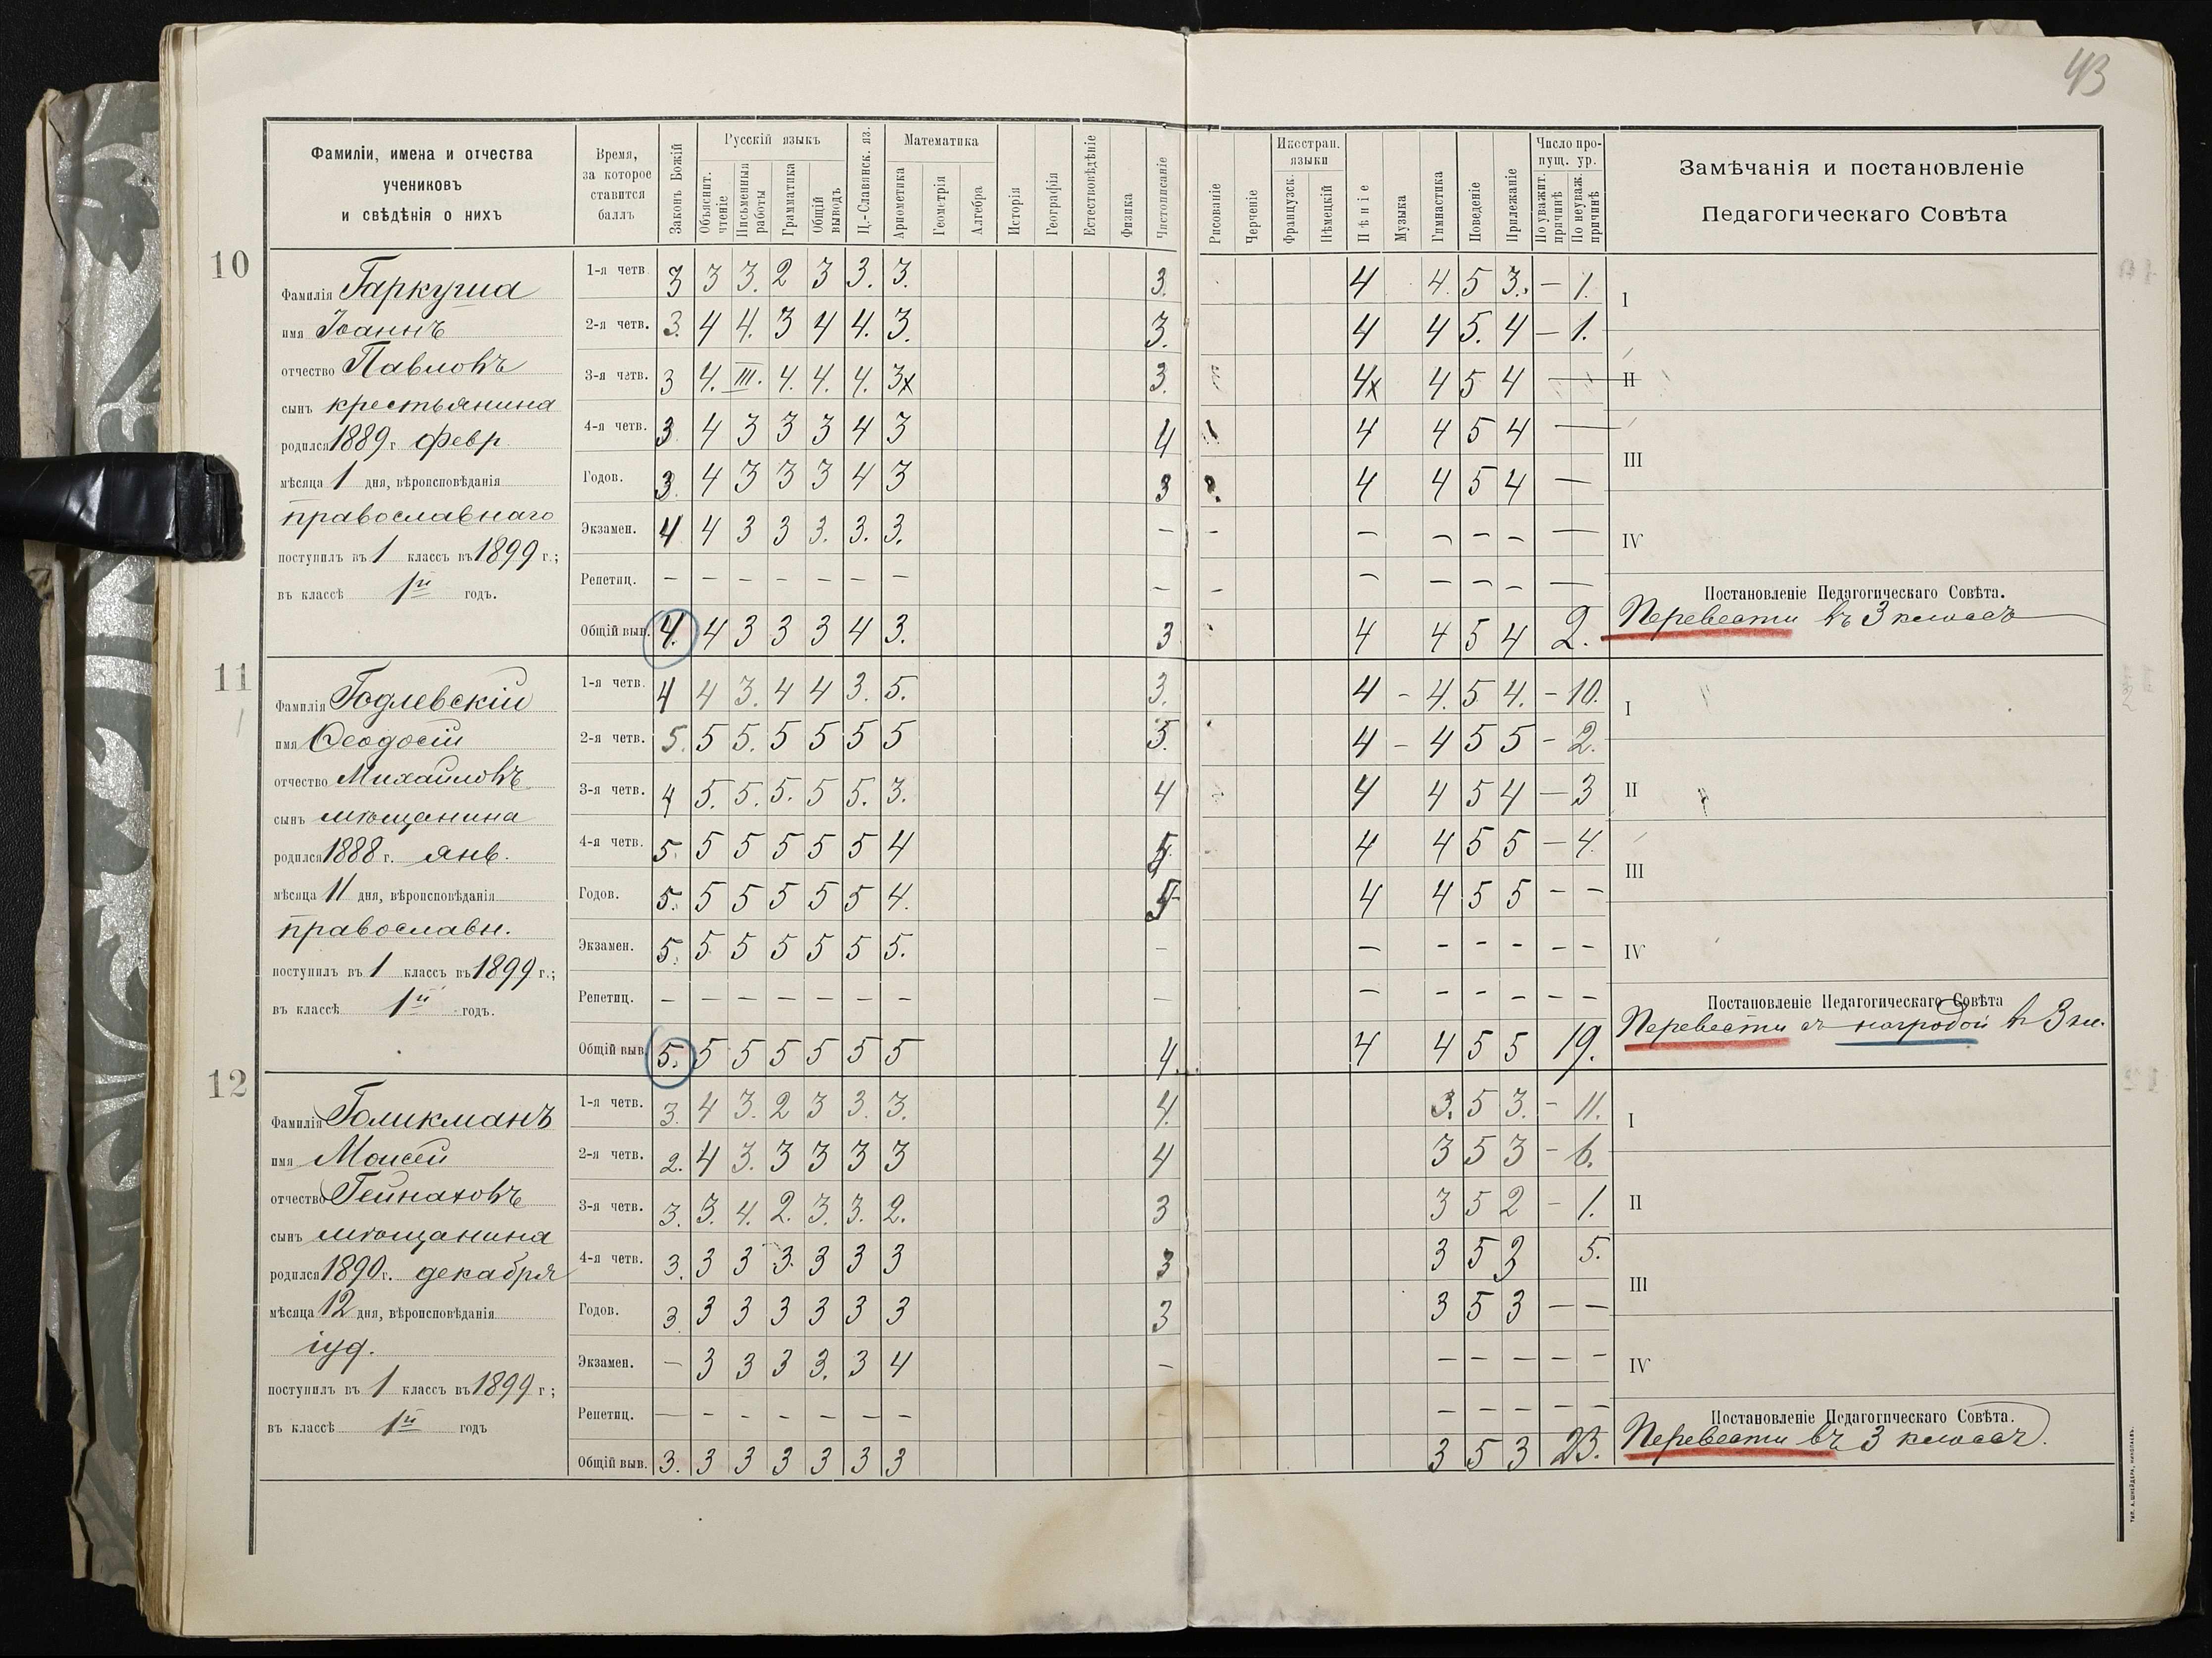 43
Фамиліи, имена и отчества
учениковъ
и свѣдѣнія о нихъ
Время,
за которое
ставится
баллъ
Законъ Божій
Русскій языкъ
Объяснит. чтеніе
Письменныя работы
Грамматика
Общій выводъ
Ц.-Славянск. яз.
Математика
Ариѳметика
Геометрія
Алгебра
Исторія
Географія
Естествовѣдѣніе
Физика
Чистописаніе
Рисованіе
Черченіе
Иностран. языки
Французск.
Нѣмецкій
Пѣніе
Музыка
Гимнастика
Поведеніе
Прилежаніе
Число пропущ. ур.
По уважит. причинѣ
По неуваж. причинѣ
Замѣчанія и постановленіе
Педагогическаго Совѣта
10
Фамилія Гаркуша
имя Іоаннъ
отчество Павловъ
сынъ крестьянина
родился 1889 г. февр.
мѣсяца 1 дня, вѣроисповѣданія
православнаго
поступилъ въ 1 классъ въ 1899 г.;
въ классѣ 1й годъ.
1-я четв. 3 3 3. 2 3 3. 3. 3. 4 4. 5 3. – 1.
2-я четв. 3. 4 4. 3 4 4. 3. 3. 4 4 5. 4 – 1.
3-я четв. 3 4. III. 4. 4. 4. 3x 3. 4x 4 5 4 —
4-я четв. 3 4 3 3 3 4 3 4 4 4 5 4 —
Годов. 3. 4 3 3 3 4 3 3 4 4 5 4 —
Экзамен. 4 4 3 3 3. 3. 3. – – – – – – —
Репетиц. – – – – – – – – – – – – – —
Общій выв. 4. 4 3 3 3 4 3. 3 4 4 5 4 2.
I
II
III
IV
Постановленіе Педагогическаго Совѣта.
Перевести въ 3 классъ
11
Фамилія Годлевскій
имя Ѳеодосій
отчество Михайловъ
сынъ мѣщанина
родился 1888 г. янв.
мѣсяца 11 дня, вѣроисповѣданія
православн.
поступилъ въ 1 классъ въ 1899 г.;
въ классѣ 1й годъ.
1-я четв. 4 4 3. 4 4 3. 5. 3. 4 – 4. 5 4. – 10.
2-я четв. 5. 5 5. 5 5 5 5 3. 4 – 4 5 5 – 2.
3-я четв. 4 5. 5. 5. 5 5. 3. 4 4 4 5 4 – 3
4-я четв. 5. 5 5 5 5 5 4 4 4 5 5 – 4.
Годов. 5. 5 5 5 5 5 4. 4 4 5 5 – –
Экзамен. 5. 5 5 5 5 5 5. – – – – – – –
Репетиц. – – – – – – – – – – – – – –
Общій выв. 5. 5 5 5 5 5 5 4. 4 4 5 5 19.
I
II
III
IV
Постановленіе Педагогическаго Совѣта
Перевести съ наградой въ 3 кл.
12
Фамилія Голикманъ
имя Моисей
отчество Гейнаховъ
сынъ мѣщанина
родился 1890 г. декабря
мѣсяца 12 дня, вѣроисповѣданія
іуд.
поступилъ въ 1 классъ въ 1899 г;
въ классѣ 1й годъ
1-я четв. 3. 4 3. 2 3 3. 3. 4. 3. 5 3. – 11.
2-я четв. 2. 4 3. 3 3 3 3 4 3 5 3 – 6.
3-я четв. 3. 3. 4. 2. 3. 3. 2. 3 3 5 2 – 1.
4-я четв. 3. 3 3 3. 3 3 3 3 3 5 3 5.
Годов. 3. 3 3 3 3 3 3 3 3 5 3 – –
Экзамен. – 3 3 3 3. 3 4 – – – – – –
Репетиц. – – – – – – – – – – – – –
Общій выв. 3. 3 3 3 3 3 3 3 5 3 23.
I
II
III
IV
Постановленіе Педагогическаго Совѣта.
Перевести въ 3 классъ.
ТИП. А. ШНЕЙДЕРА, НИКОЛАЕВЪ.